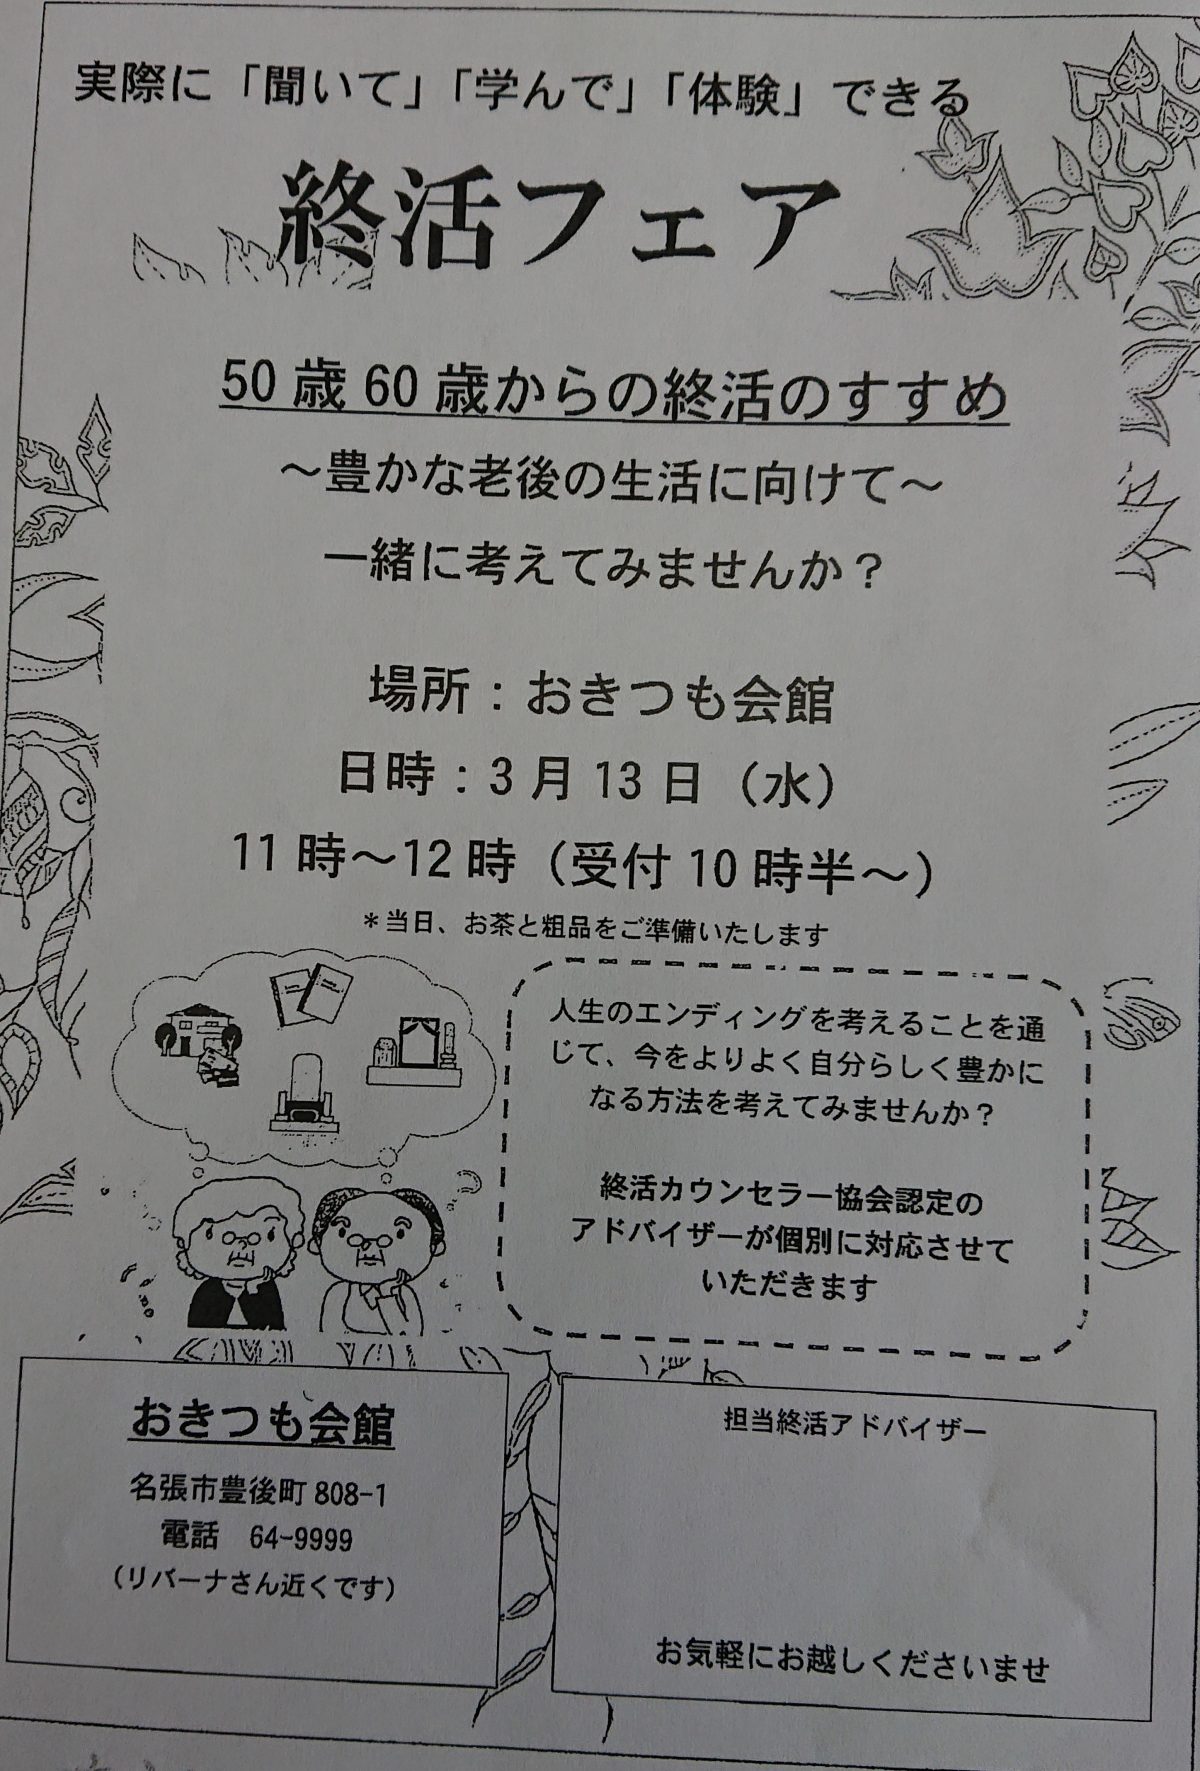 実際に「聞いて」「学んで」「体験」できる
終活フェア
50歳60歳からの終活のすすめ
～豊かな老後の生活に向けて～
一緒に考えてみませんか？
場所：おきつも会館
日時：3月13日（水）
11時～12時（受付10時半～）
＊当日、お茶と粗品をご準備いたします
人生のエンディングを考えることを通
じて、今をよりよく自分らしく豊かに
なる方法を考えてみませんか？
終活カウンセラー協会認定の
アドバイザーが個別に対応させて
いただきます
おきつも会館
名張市豊後町808-1
電話　64-9999
（リバーナさん近くです）
担当終活アドバイザー
お気軽にお越しくださいませ